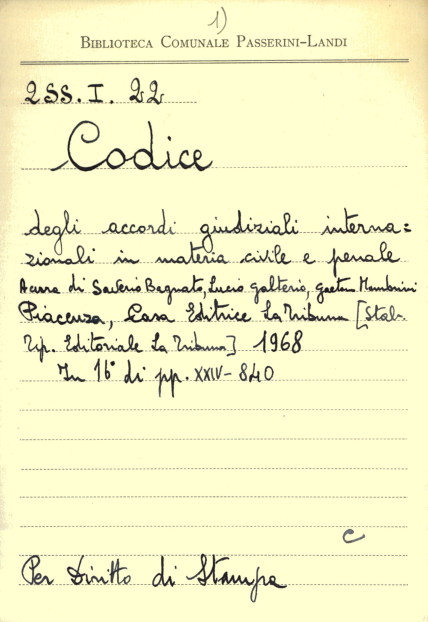 1)
BIBLIOTECA COMUNALE PASSERINI-LANDI
2SS. I. 22
Codice
degli accordi giudiziali interna=
zionali in materia civile e penale
A cura di Saverio Bagnato, Lucio Galterio, Gaetano Mambrini
Piacenza, Casa Editrice La Tribuna [Stab.
Tip. Editoriale La Tribuna] 1968
In 16° di pp. XXIV-840
c
Per Diritto di Stampa